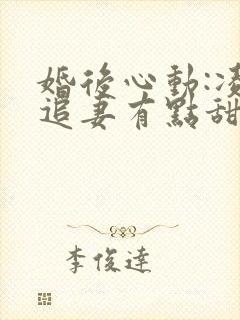 婚後心動:凌
追妻有點甜
李俊達